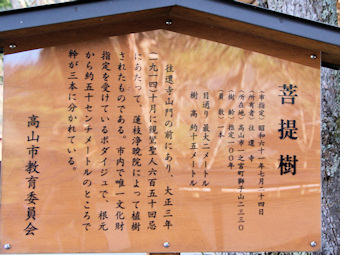 菩提樹
(市指定)昭和六十一年七月二十四日
(所有者)往還寺
(所在地)高山市一之宮町獅子山二二三〇
(樹齢)推定一〇〇年
(員数)一本
目通り 最大二メートル
樹高 約十五メートル
往還寺山門の前にあり、大正三年
(一九一四)十月に親鸞聖人六百五十回忌
にあたって、蓮枝浄暁院によって植樹
されたものである。市内で唯一文化財
指定を受けているボダイジュで、根元
から約五十センチメートルのところで
幹が三本に分かれている。
高山市教育委員会